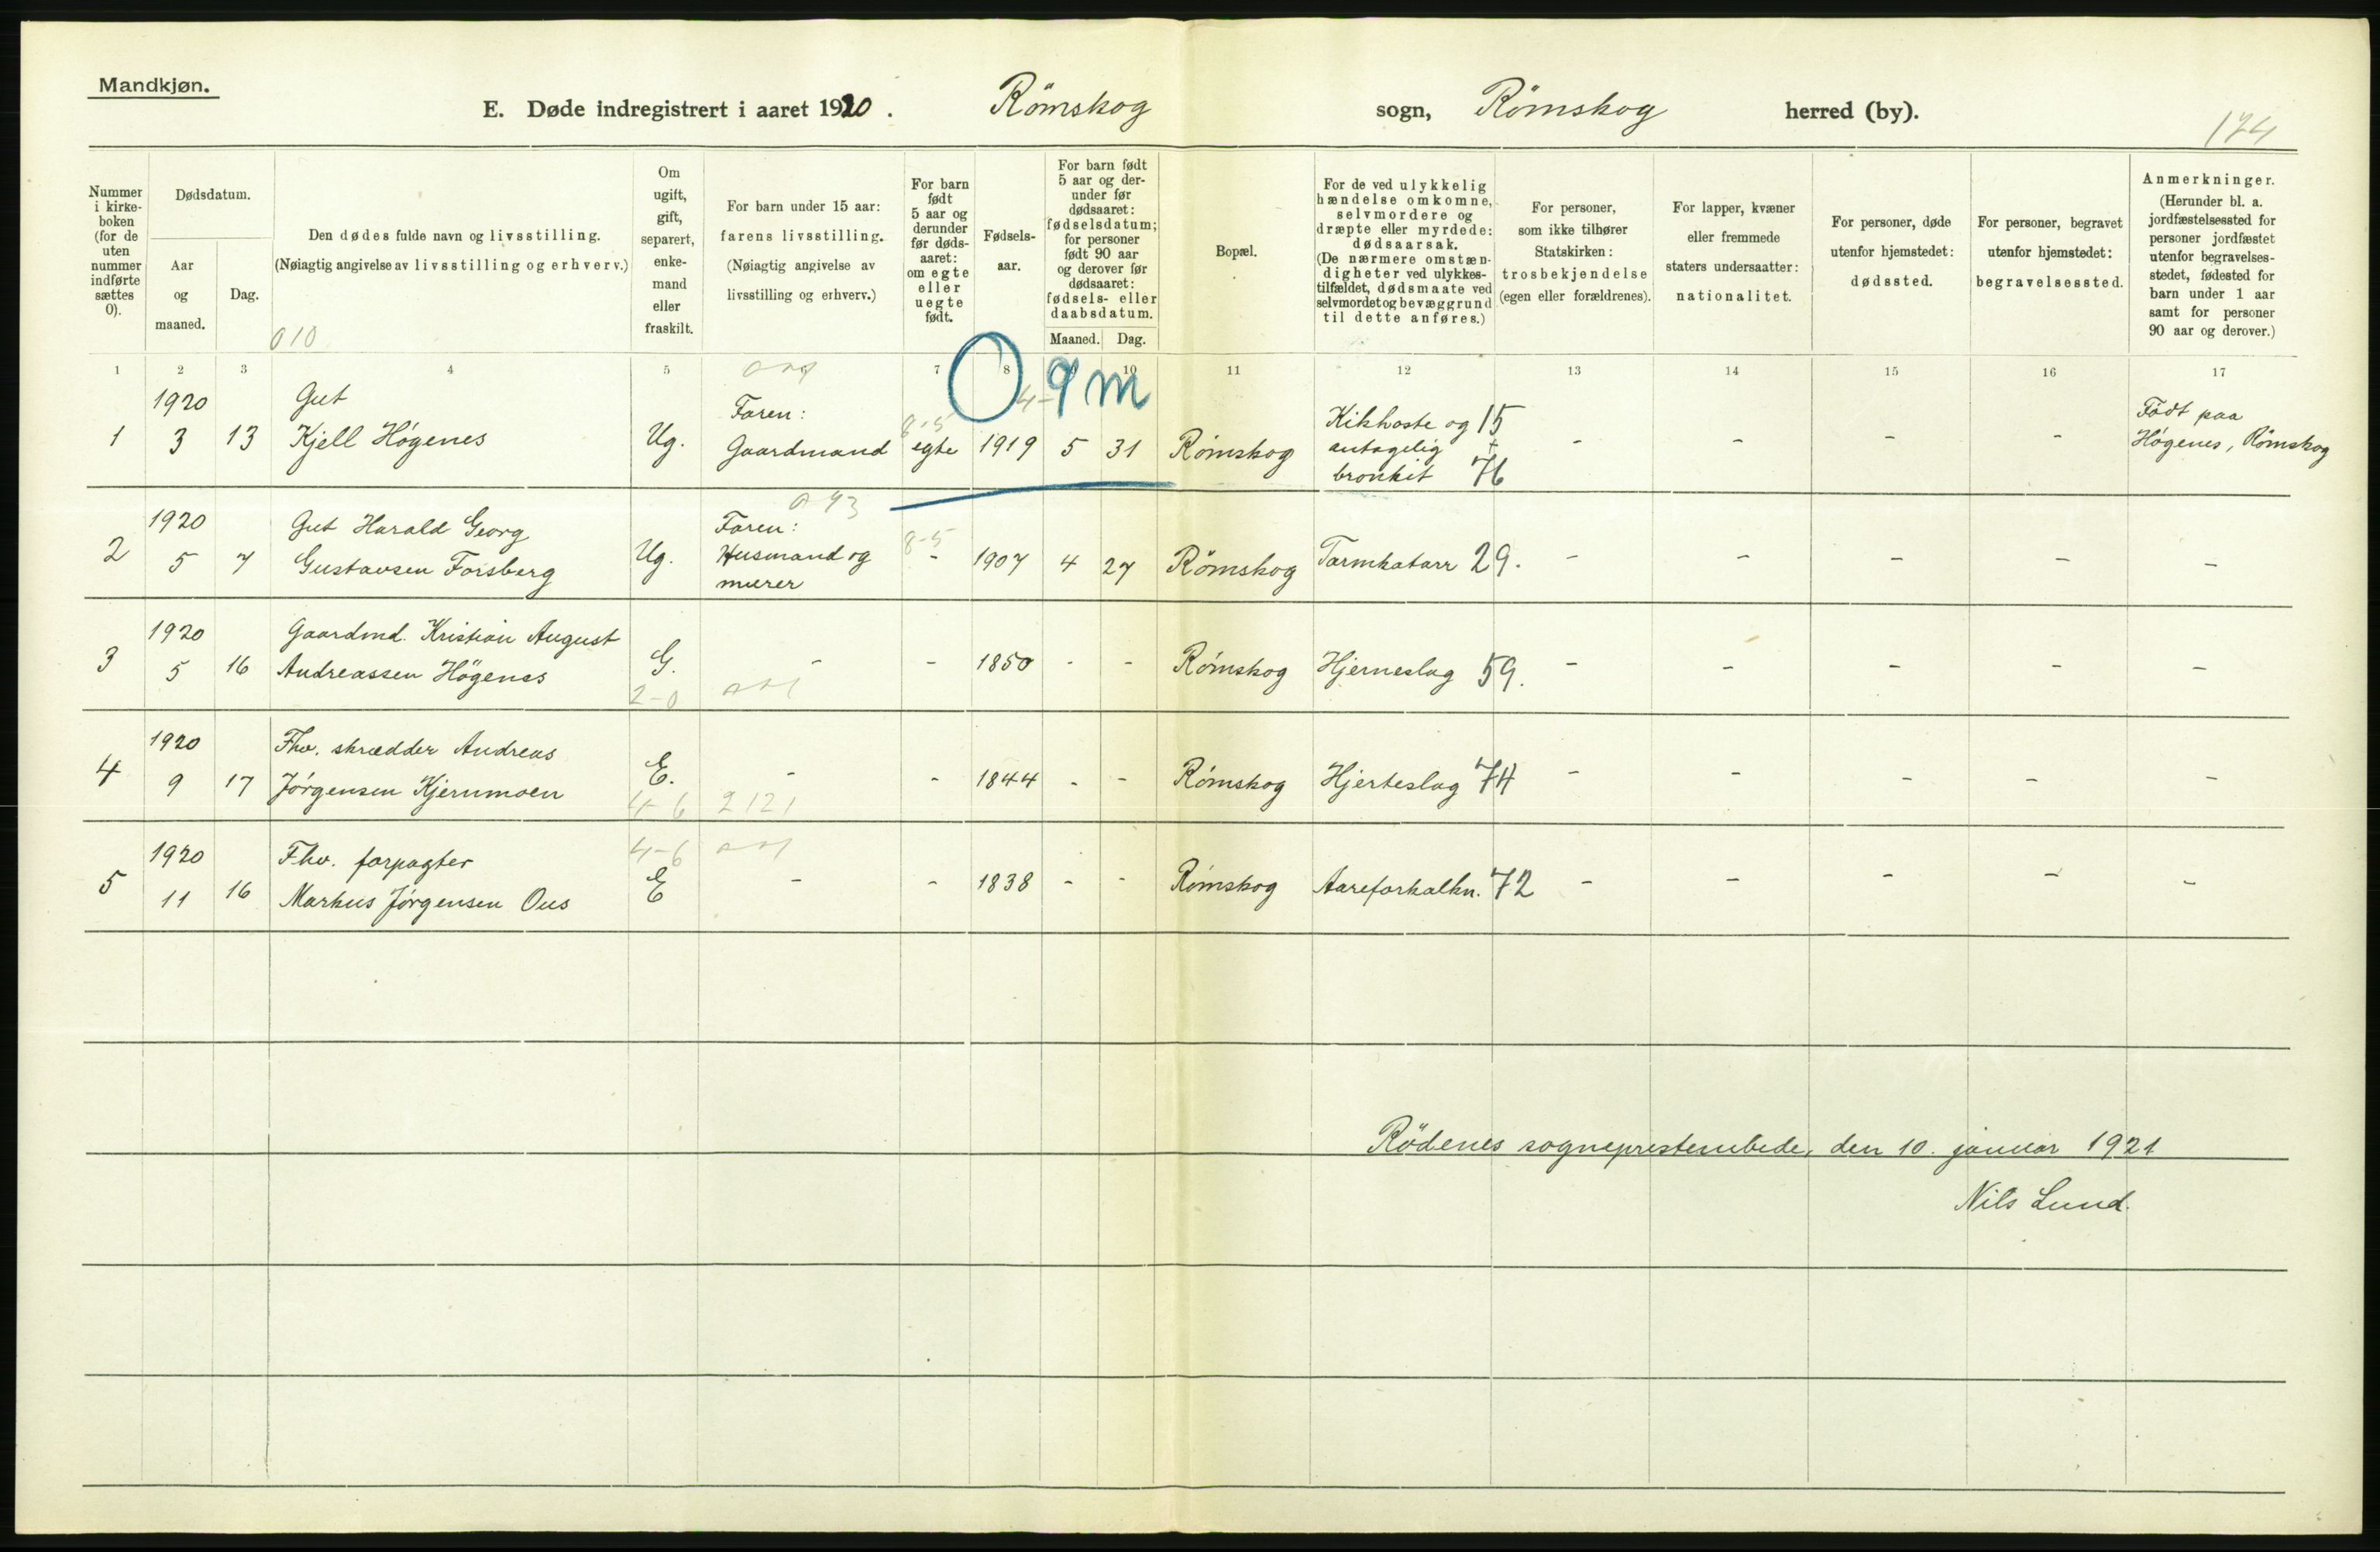 Mandkjøn.
E. Døde indregistrert i aaret 1920. Römskog sogn, Römskog herred (by).
174
Nummer i kirkeboken (for de uten nummer indførte sættes 0).
Dødsdatum.
Aar og maaned.
Dag.
Den dødes fulde navn og livsstilling.
(Nøiagtig angivelse av livsstilling og erhverv.)
010
Om ugift, gift, separert, enkemand eller fraskilt.
For barn under 15 aar: farens livsstilling.
(Nøiagtig angivelse av livsstilling og erhverv.)
For barn født 5 aar og derunder før dødsaaret: om egte eller uegte født.
Fødselsaar.
For barn født 5 aar og derunder før dødsaaret: fødselsdatum; for personer født 90 aar og derover før dødsaaret: fødsels- eller daabsdatum.
Maaned. Dag.
Bopæl.
For de ved ulykkelig hændelse omkomne, selvmordere og dræpte eller myrdede: dødsaarsak.
(De nærmere omstændigheter ved ulykkestilfældet, dødsmaate ved selvmordet og bevæggrund til dette anføres.)
For personer, som ikke tilhører Statskirken: trosbekjendelse (egen eller forældrenes).
For lapper, kvæner eller fremmede staters undersaatter: nationalitet.
For personer, døde utenfor hjemstedet: dødssted.
For personer, begravet utenfor hjemstedet: begravelsessted.
Anmerkninger.
(Herunder bl. a. jordfæstelsessted for personer jordfæstet utenfor begravelsesstedet, fødested for barn under 1 aar samt for personer 90 aar og derover.)
1 2 3 4 5 7 8 10 11 12 13 14 15 16 17
0 9 m
1920 Gut Faren: 8-5 Kikhoste og 15 Födt paa
1 3 13 Kjell Högenes Ug. Gaardmand egte 1919 5 31 Römskog antagelig + - - - - Högenes, Römskog
bronkit 76
1920 Gut Harald Georg Faren: 8-5
2 5 7 Gustavsen Forsberg Ug. Husmand og - 1907 4 27 Römskog Tarmkatarr 29. - - - - -
murer
1920 Gaardmd. Kristian August
3 5 16 Andreassen Högenes G. - - 1850 - - Römskog Hjerneslag 59. - - - - -
2-0
1920 Fhv. skrædder Andreas
4 9 17 Jörgensen Kjernmoen E. - - 1844 - - Römskog Hjerteslag 74 - - - - -
4-6 2121
1920 Fhv. forpagter 4-6
5 11 16 Markus Jörgensen Ous E - - 1838 - - Römskog Aareforkalkn. 72 - - - - -
Rödenes sogneprestembede, den 10. januar 1921
Nils Lund.